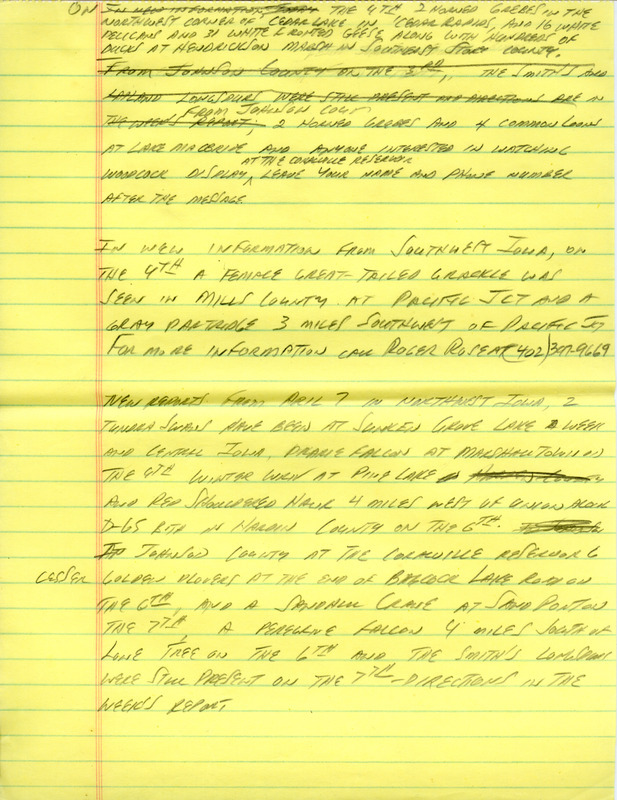 ON IN NEW INFORMATION FROM THE 4TH 2 HORNED GREBES IN THE
NORTHWEST CORNER OF CEDAR LAKE IN CEDAR RAPIDS, AND 16 WHITE
PELICANS AND 31 WHITE FRONTED GEESE ALONG WITH HUNDREDS OF
DUCKS AT HENDRICKSON MARSH IN SOUTHEAST STORY COUNTY.
FROM JOHNSON COUNTY ON THE 3RD, THE SMITH'S AND
LAPLAND LONGSPURS WERE STILL PRESENT AND DIRECTIONS ARE IN
THE WEEKS REPORT, FROM JOHNSON COUNTY 2 HORNED GREBES AND 4 COMMON LOONS
AT LAKE MACBRIDE AND ANYONE INTERESTED IN WATCHING
AT THE CORALVILLE RESERVOIR
WOODCOCK DISPLAY, LEAVE YOUR NAME AND PHONE NUMBER
AFTER THE MESSAGE.
IN NEW INFORMATION FROM SOUTHWEST IOWA, ON
THE 4TH A FEMALE GREAT-TAILED GRACKLE WAS
SEEN IN MILLS COUNTY AT PACIFIC JCT AND A
GRAY PARTRIDGE 3 MILES SOUTHWEST OF PACIFIC JCT
FOR MORE INFORMATION CALL ROGER (402)397-9669
NEW REPORTS FROM APRIL 7 IN NORTHWEST IOWA, 2
TUNDRA SWANS HAVE BEEN AT SUNKEN GROVE LAKE WEEK
AND CENTRAL IOWA, PRAIRIE FALCON AT MARSHALLTOWN ON
THE 6TH WINTER WREN AT PINE LAKE
AND RED SHOULDERED HAWK 4 MILES WEST OF UNION ALONG
D-65 BOTH IN HARDIN COUNTY ON THE 6TH.
IN JOHNSON COUNTY AT THE CORALVILLE RESERVOIR 6
LESSER GOLDEN PLOVERS AT THE END OF BABCOCK LAKE ROAD ON
THE 6TH, AND A SANDHILL CRANE AT SAND POINT ON
THE 7TH, A PEREGRINE FALCON 4 MILES SOUTH OF
LONE TREE ON THE 6TH AND THE SMITH'S LONGSPURS
WERE STILL PRESENT ON THE 7TH-DIRECTIONS IN THE
WEEK'S REPORT